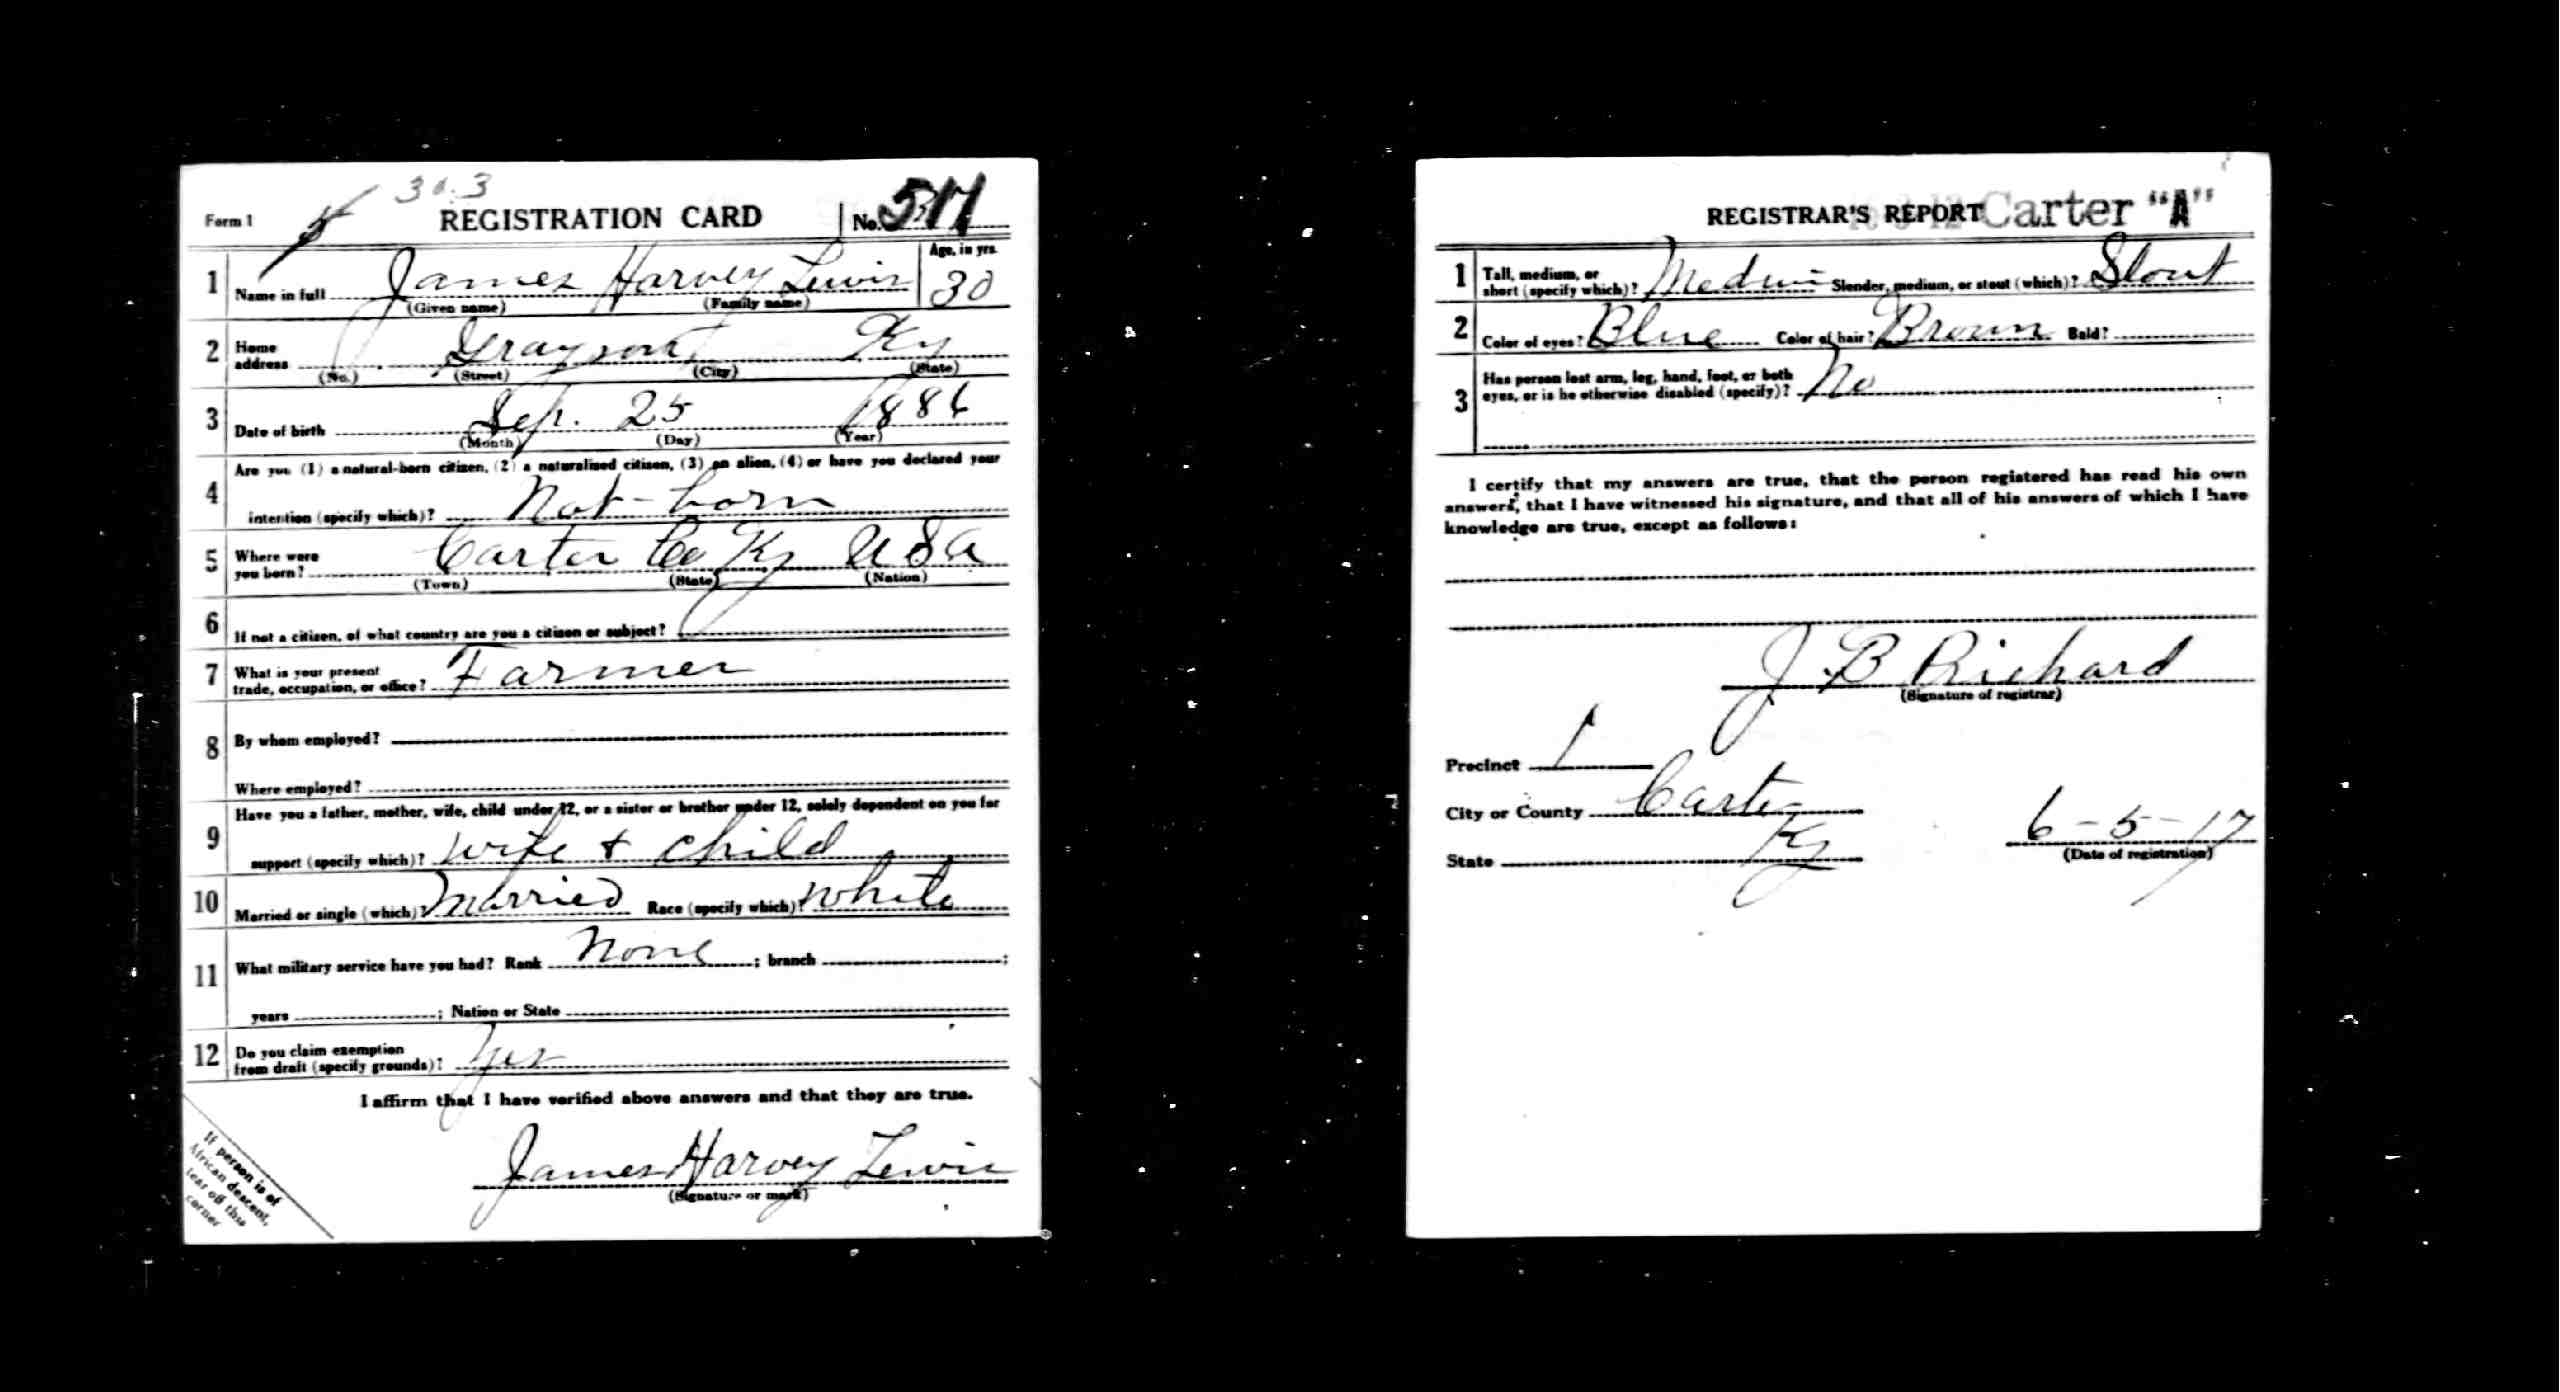 30.3
Form 1 REGISTRATION CARD No. 517
Age, in yrs.
1 Name in full James Harvey Lewis 30
(Given name) (Family name)
2 Home address Grayson Ky
(No.) (Street) (City) (State)
3 Date of birth Sep. 25 1886
(Month) (Day) (Year)
Are you (1) a natural-born citizen, (2) a naturalized citizen, (3) an alien, (4) or have you declared your
4 intention (specify which)? Nat-born
5 Where were you born? Carter Co Ky USA
(Town) (State) (Nation)
6 If not a citizen, of what country are you a citizen or subject?
7 What is your present trade, occupation, or office? Farmer
8 By whom employed?
Where employed?
Have you a father, mother, wife, child under 12, or a sister or brother under 12, solely dependent on you for
9 support (specify which)? wife + child
10 Married or single (which)? Married Race (specify which)? White
11 What military service have you had? Rank None ; branch ;
years ; Nation or State
12 Do you claim exemption from draft (specify grounds)? Yes
I affirm that I have verified above answers and that they are true.
James Harvey Lewis
(Signature or mark)
If person is of
African descent,
tear off this
corner
REGISTRAR'S REPORT Carter "A"
1 Tall, medium, or short (specify which)? Medium Slender, medium, or stout (which)? Stout
2 Color of eyes? Blue Color of hair? Brown Bald?
3 Has person lost arm, leg, hand, foot, or both eyes, or is he otherwise disabled (specify)? No
I certify that my answers are true, that the person registered has read his own
answers, that I have witnessed his signature, and that all of his answers of which I have
knowledge are true, except as follows:
J. B Richard
(Signature of registrar)
Precinct 1
City or County Carter
State Ky 6-5-17
(Date of registration)